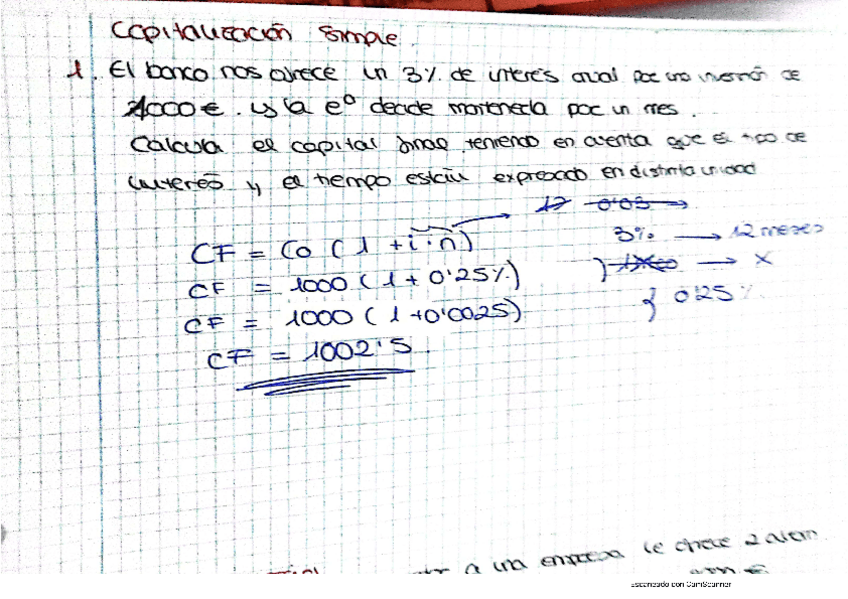 Capitalización Simple.
1. El banco nos ofrece un 3% de interés anual por una inversión de
1000€. y la eª decide mantenerla por un mes.
Calcula el capital final teniendo en cuenta que el tipo de
interés y el tiempo están expresado en distinta unidad
CF = Co ( 1 + i · n )
12 0'03
3% → 12 meses
→ x
CF = 1000 ( 1 + 0'25%)
0'25%
CF = 1000 ( 1 + 0'0025)
CF = 1002'5
a una empresa le ofrece 2
Escaneado con CamScanner